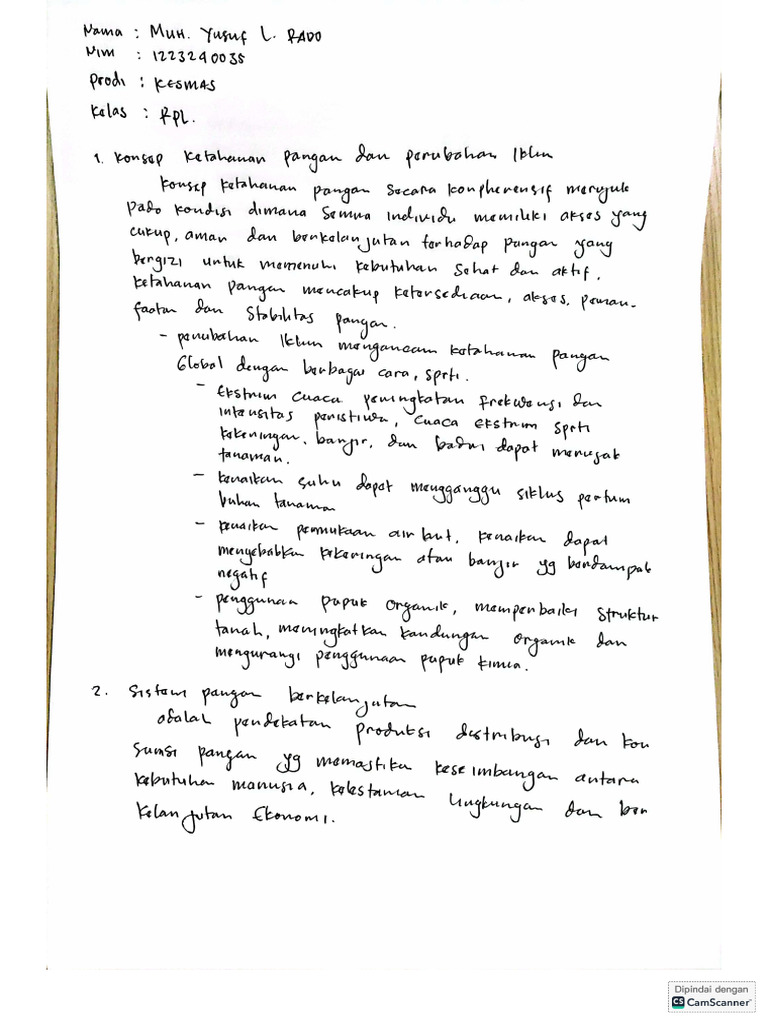 Nama : MUH. Yusuf L. RADO
Nim : 1223240035
Prodi : KESMAS
Kelas : RPL.
1. Konsep Ketahanan pangan dan perubahan Iklim
Konsep Ketahanan pangan secara konpherensif merujuk
pada kondisi dimana semua individu memiliki akses yang
cukup, aman dan berkelanjutan terhadap pangan yang
bergizi untuk memenuhi kebutuhan sehat dan aktif.
ketahanan pangan mencakup ketersediaan, akses, peman-
faatan dan Stabilitas pangan.
- perubahan Iklim mengancam ketahanan pangan
Global dengan berbagai cara, sprti.
- Ekstrim cuaca peningkatan frekuensi dan
intensitas peristiwa, cuaca ekstrim sprti
kekeringan, banjir, dan badai dapat merusak
tanaman.
- kenaikan suhu dapat mengganggu siklus pertum
buhan tanaman
- kenaikan permukaan air laut, kenaikan dapat
menyebabkan kekeringan atau banjir yg berdampak
negatif
- penggunaan pupuk organik, memperbaiki struktur
tanah, meningkatkan kandungan organik dan
mengurangi penggunaan pupuk kimia.
2. Sistem pangan berkelanjutan
adalah pendekatan produksi distribusi dan kon
sumsi pangan yg memastika keseimbangan antara
kebutuhan manusia, kelestarian lingkungan dan ber
kelanjutan Ekonomi.
Dipindai dengan
CS CamScanner